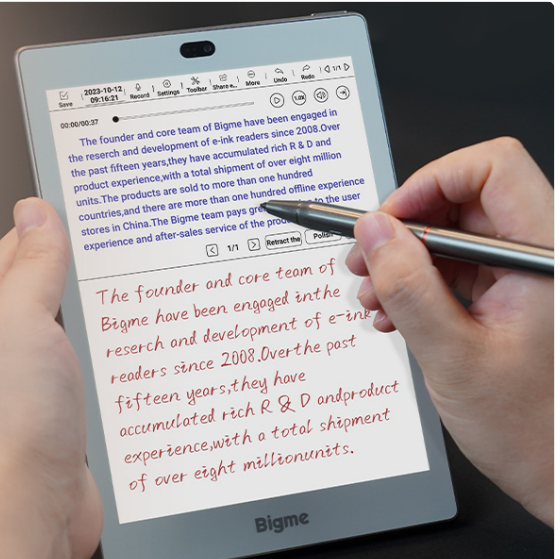 Save 2023-10-12 09:16:21 Record Settings Toolbar More Undo Redo 1/1
00:00/00:37 1.0X
The founder and core team of Bigme have been engaged in
the reserch and development of e-ink readers since 2008.Over
the past fifteen years,they have accumulated rich R & D and
product experience,with a total shipment of over eight million
units.The products are sold to more than one hundred
countries,and there are more than one hundred offline experience
stores in China.The Bigme team pays to the user
experience and after-sales service of the
1/1 Retract the
The founder and core team of
Bigme have been engaged inthe
reserch and development of e-ink
readers since 2008.Overthe past
fifteen years,they have
accumulated rich R & D andproduct
experience,with a total shipment
of over eight millionunits.
Bigme